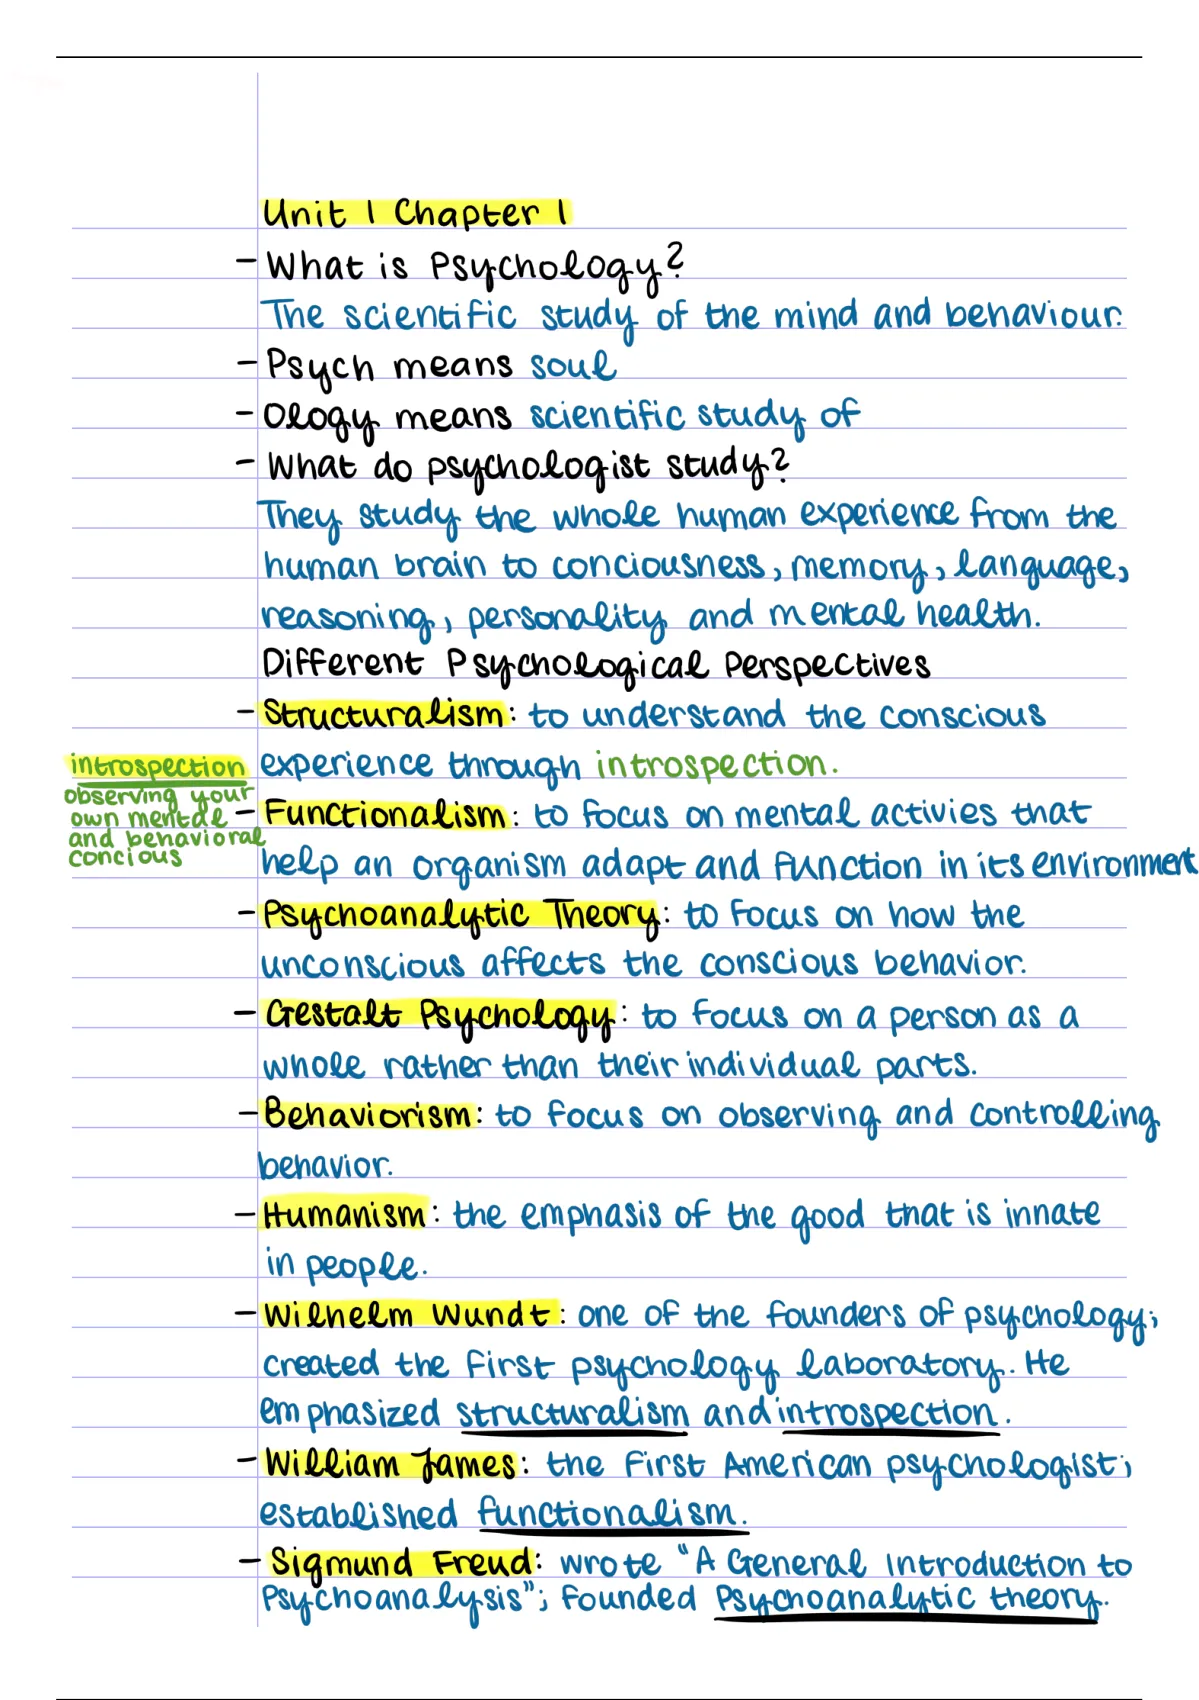 Unit 1 Chapter 1
- What is Psychology?
The scientific study of the mind and behaviour.
- Psych means soul
- Ology means scientific study of
- What do psychologist study?
They study the whole human experience from the
human brain to conciousness, memory, language,
reasoning, personality and mental health.
Different Psychological Perspectives
- Structuralism: to understand the conscious
experience through introspection.
introspection
observing your
own mental
and behavioral
concious
- Functionalism: to focus on mental activies that
help an organism adapt and function in its environment
- Psychoanalytic Theory: to focus on how the
unconscious affects the conscious behavior.
- Gestalt Psychology: to focus on a person as a
whole rather than their individual parts.
- Behaviorism: to focus on observing and controlling
behavior.
- Humanism: the emphasis of the good that is innate
in people.
- Wilhelm Wundt: one of the founders of psychology;
created the first psychology laboratory. He
emphasized structuralism and introspection.
- William James: the first American psychologist;
established functionalism.
- Sigmund Freud: wrote "A General Introduction to
Psychoanalysis"; founded Psychoanalytic theory.